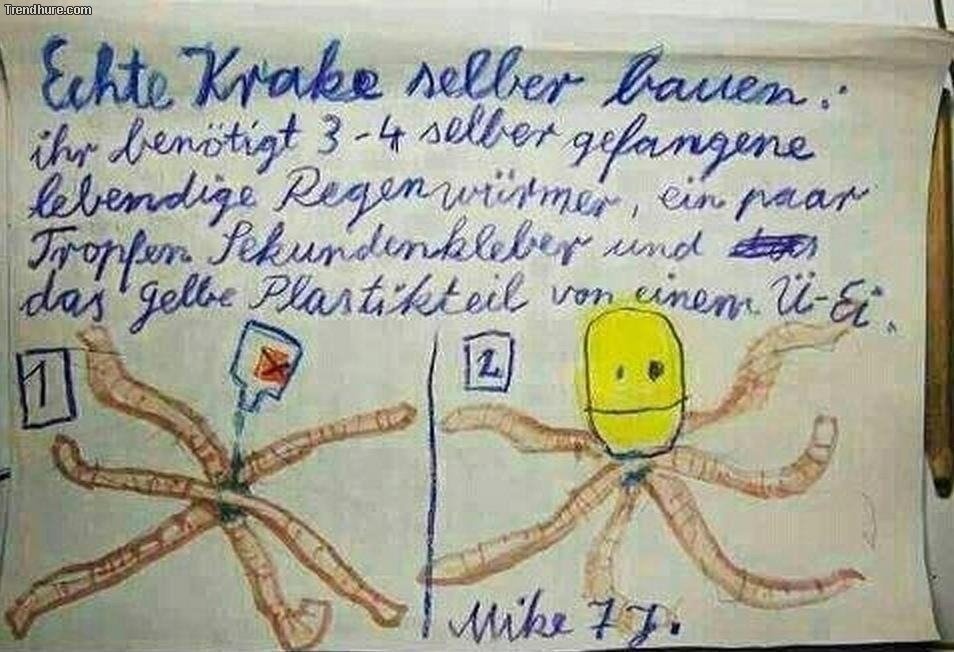 Trendhure.com
Echte Krake selber bauen:
ihr benötigt 3-4 selber gefangene
lebendige Regenwürmer, ein paar
Tropfen Sekundenkleber und
das gelbe Plastikteil von einem Ü-Ei.
1
2
Mike 7 J.